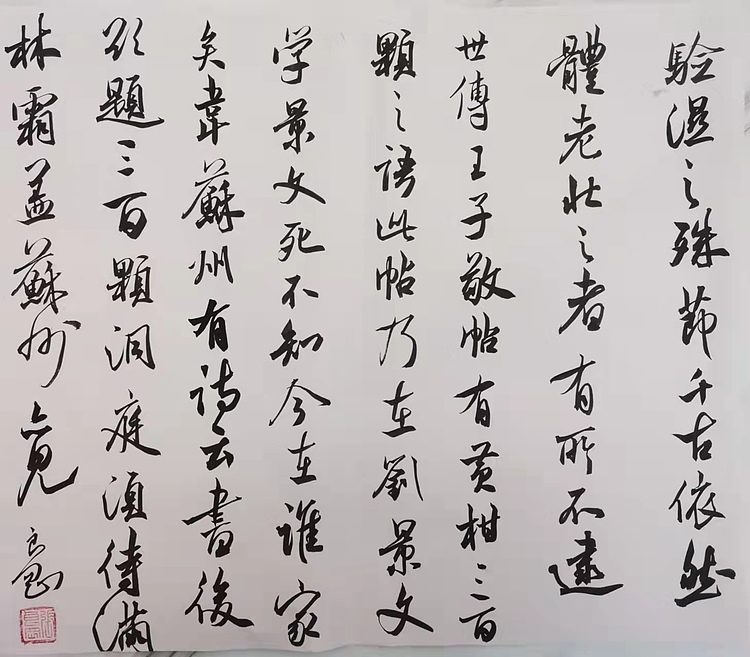 驗濕之殊節千古依然
體老壯之者有所不逮
世傳王子敬帖有黄柑三百
顆之語此帖乃在劉景文
学景文死不知今在誰家
矣韋蘇州有诗云書後
欲題三百顆洞庭須待滿
林霜盖蘇州亦見
良剛